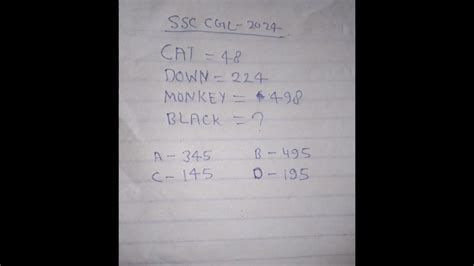 SSC CGL-2024
CAT = 48
DOWN = 224
MONKEY = 498
BLACK = ?
A - 345 B - 495
C - 145 D - 195